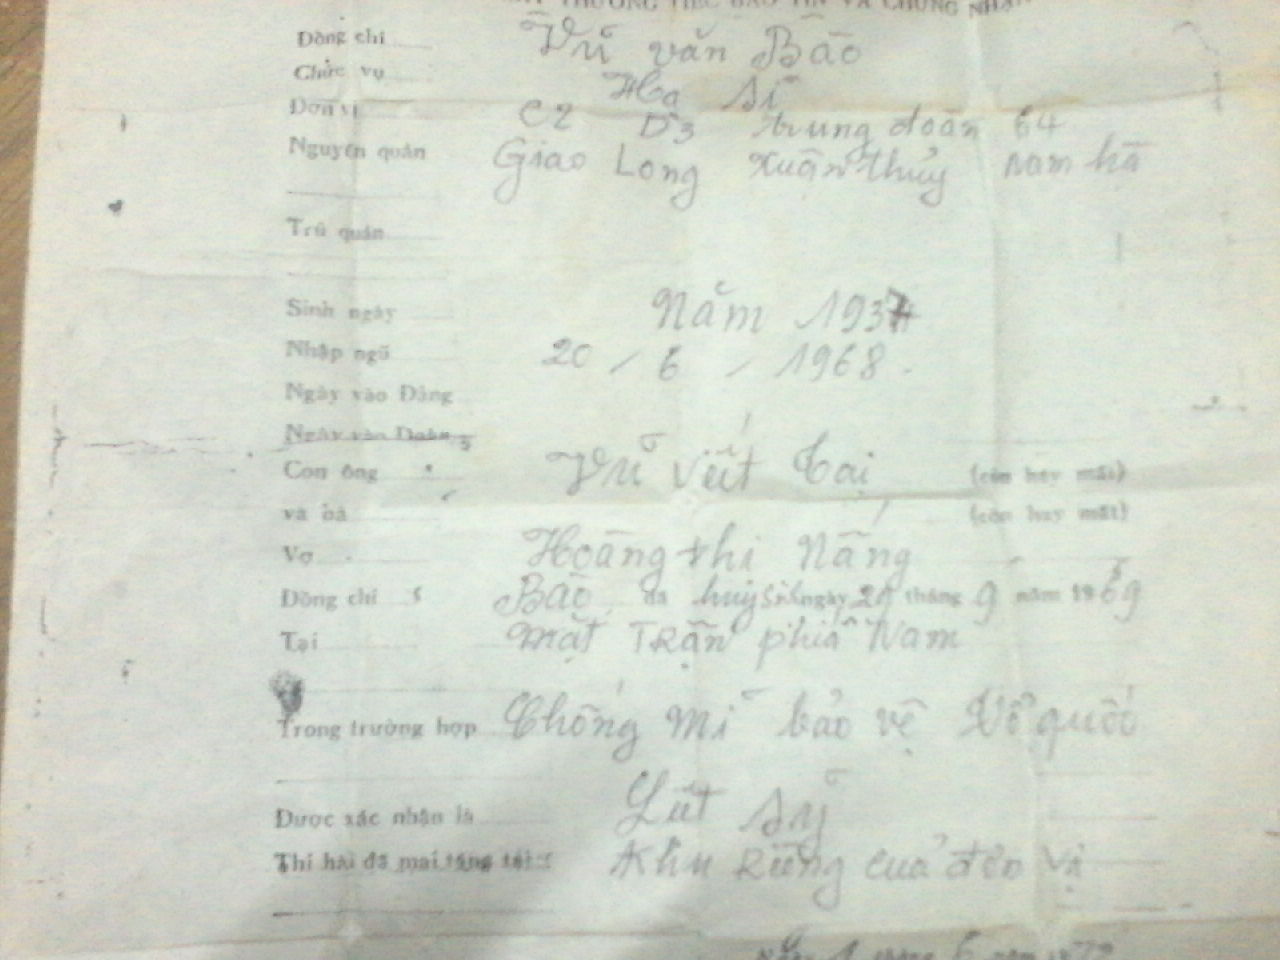 THƯƠNG TIẾC BÁO TIN VÀ CHỨNG NHẬN
Đồng chí Vũ văn Bão
Chức vụ Hạ sĩ
Đơn vị C2 D3 trung đoàn 64
Nguyên quán Giao Long Xuân thủy nam hà
Trú quán
Sinh ngày Năm 1937
Nhập ngũ 20 / 6 / 1968
Ngày vào Đảng
Ngày vào Đoàn
Con ông Vũ viết (còn hay mất)
và bà (còn hay mất)
Vợ Hoàng thị Nắng
Đồng chí Bão đã huy sinh ngày tháng 9 năm 1969
Tại mặt TRận phiá Nam
Trong trường hợp Chống mĩ bảo vệ Tổ quốc
Được xác nhận là Liệt sỹ
Thi hài đã mai táng tại Khu Rừng của đơn vị
Ngày 1 tháng 6 năm